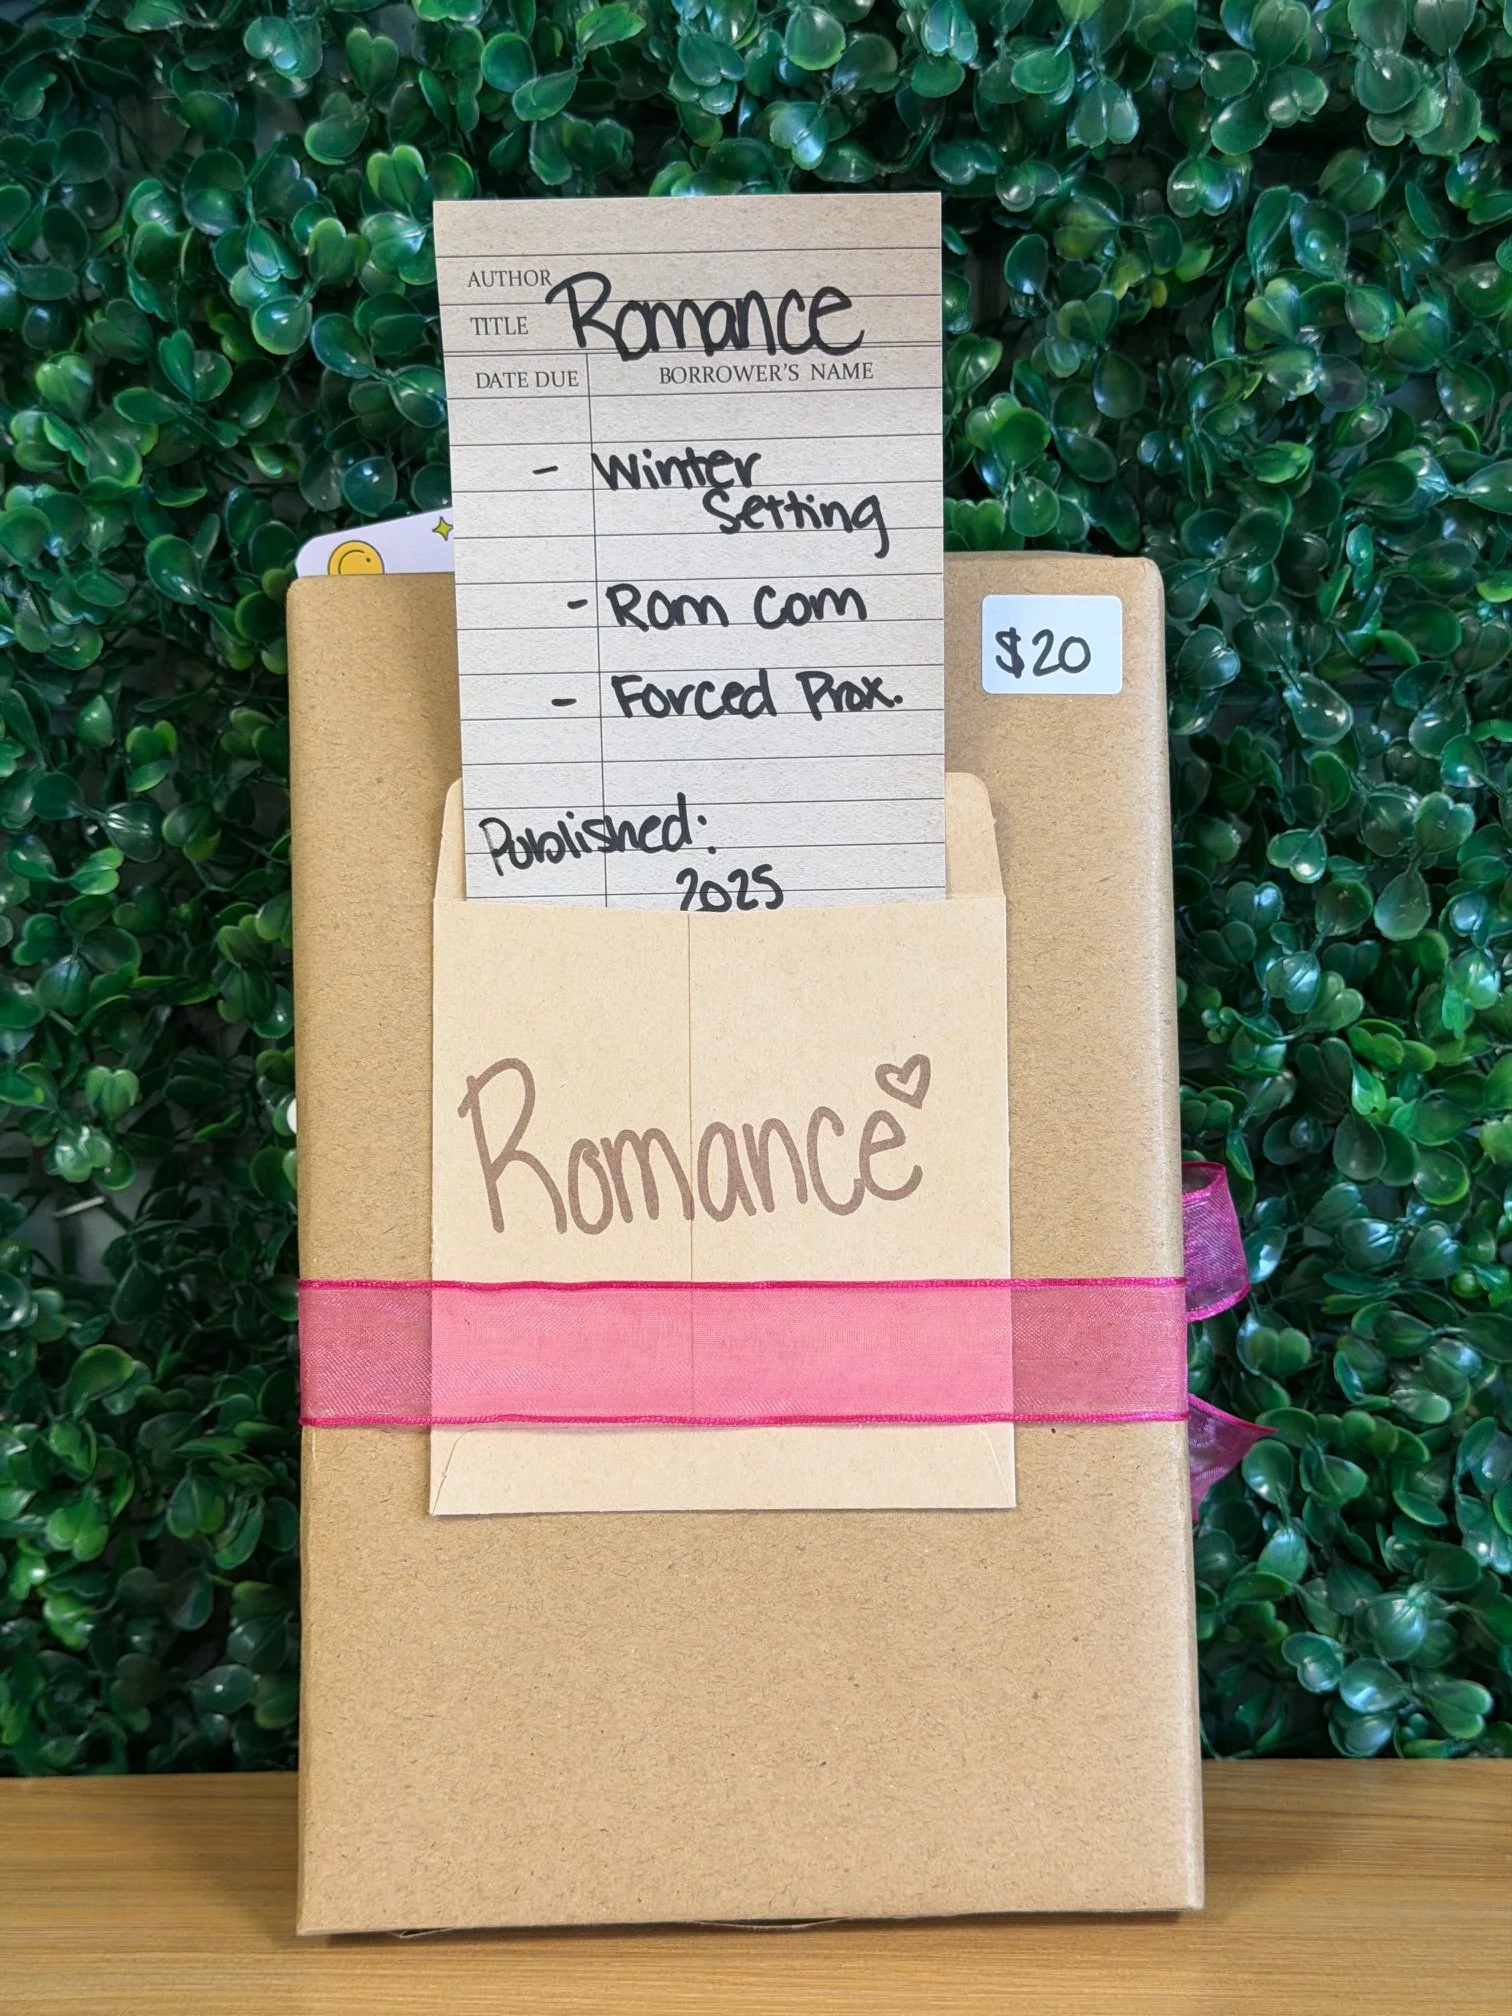 AUTHOR
TITLE Romance
DATE DUE BORROWER'S NAME
- Winter
Setting
- Rom Com
- Forced Prox.
Published:
2025
$20
Romance